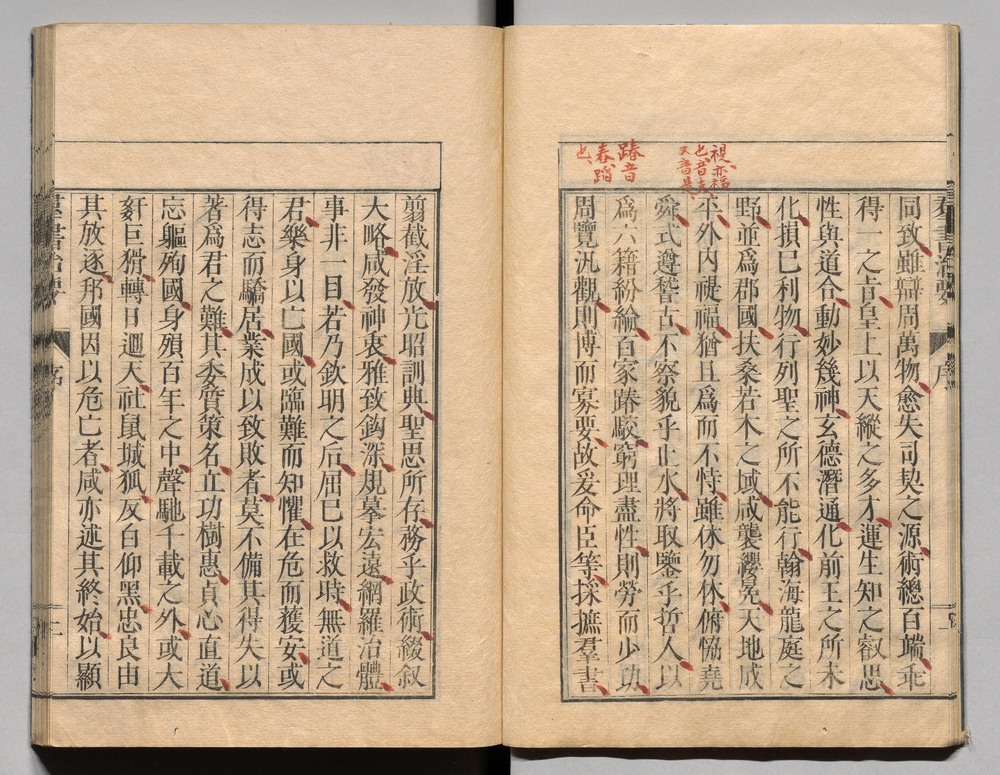 視亦福
也音支
又音是
踳音
春蹈
也
同致雖辯周萬物愈失司契之源術總百端乖
得一之旨皇上以天縱之多才運生知之叡思
性與道合動妙幾神玄德潛通化前王之所未
化損已利物行列聖之所不能行翰海龍庭之
野並爲郡國扶桑若木之域咸襲纓冕天地成
平外內禔福猶且爲而不恃雖休勿休俯恊堯
舜式遵稽古不察貌乎止水將取鑒乎哲人以
爲六籍紛綸百家踳駮窮理盡性則勞而少功
周覽汎觀則博而寡要故爰命臣等採摭羣書
翦截淫放光昭訓典聖思所存務乎政術綴叙
大略咸發神衷雅致鈎深規摹宏遠網羅治體
事非一目若乃欽明之后屈巳以救時無道之
君樂身以亡國或臨難而知懼在危而獲安或
得志而驕居業成以致敗者莫不備其得失以
著爲君之難其委質策名立功樹惠貞心直道
忘軀殉國身殞百年之中聲馳千載之外或大
姧巨猾轉日迴天社鼠城狐反白仰黑忠良由
其放逐邦國因以危亡者咸亦述其終始以顯
羣書治要 序 二